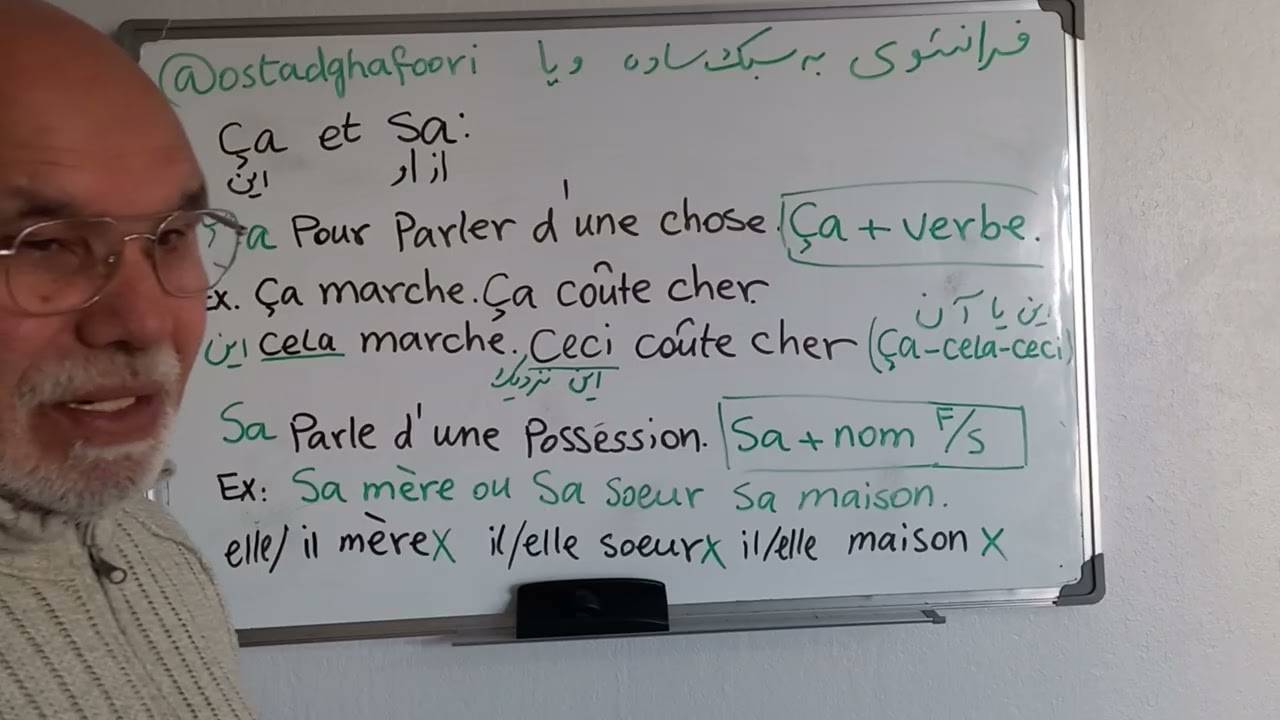 @ostadghafoori فرانسوی به سبک ساده و یا
Ça et Sa:
این از او
Ça Pour Parler d'une chose. Ça + verbe.
Ex. Ça marche. Ça coûte cher.
این یا آن
این cela marche. Ceci coûte cher (Ça-cela-ceci)
این نزدیک
Sa Parle d'une Possession. Sa + nom F/S
Ex: Sa mère ou Sa soeur Sa maison.
elle/il mère X il/elle soeur X il/elle maison X